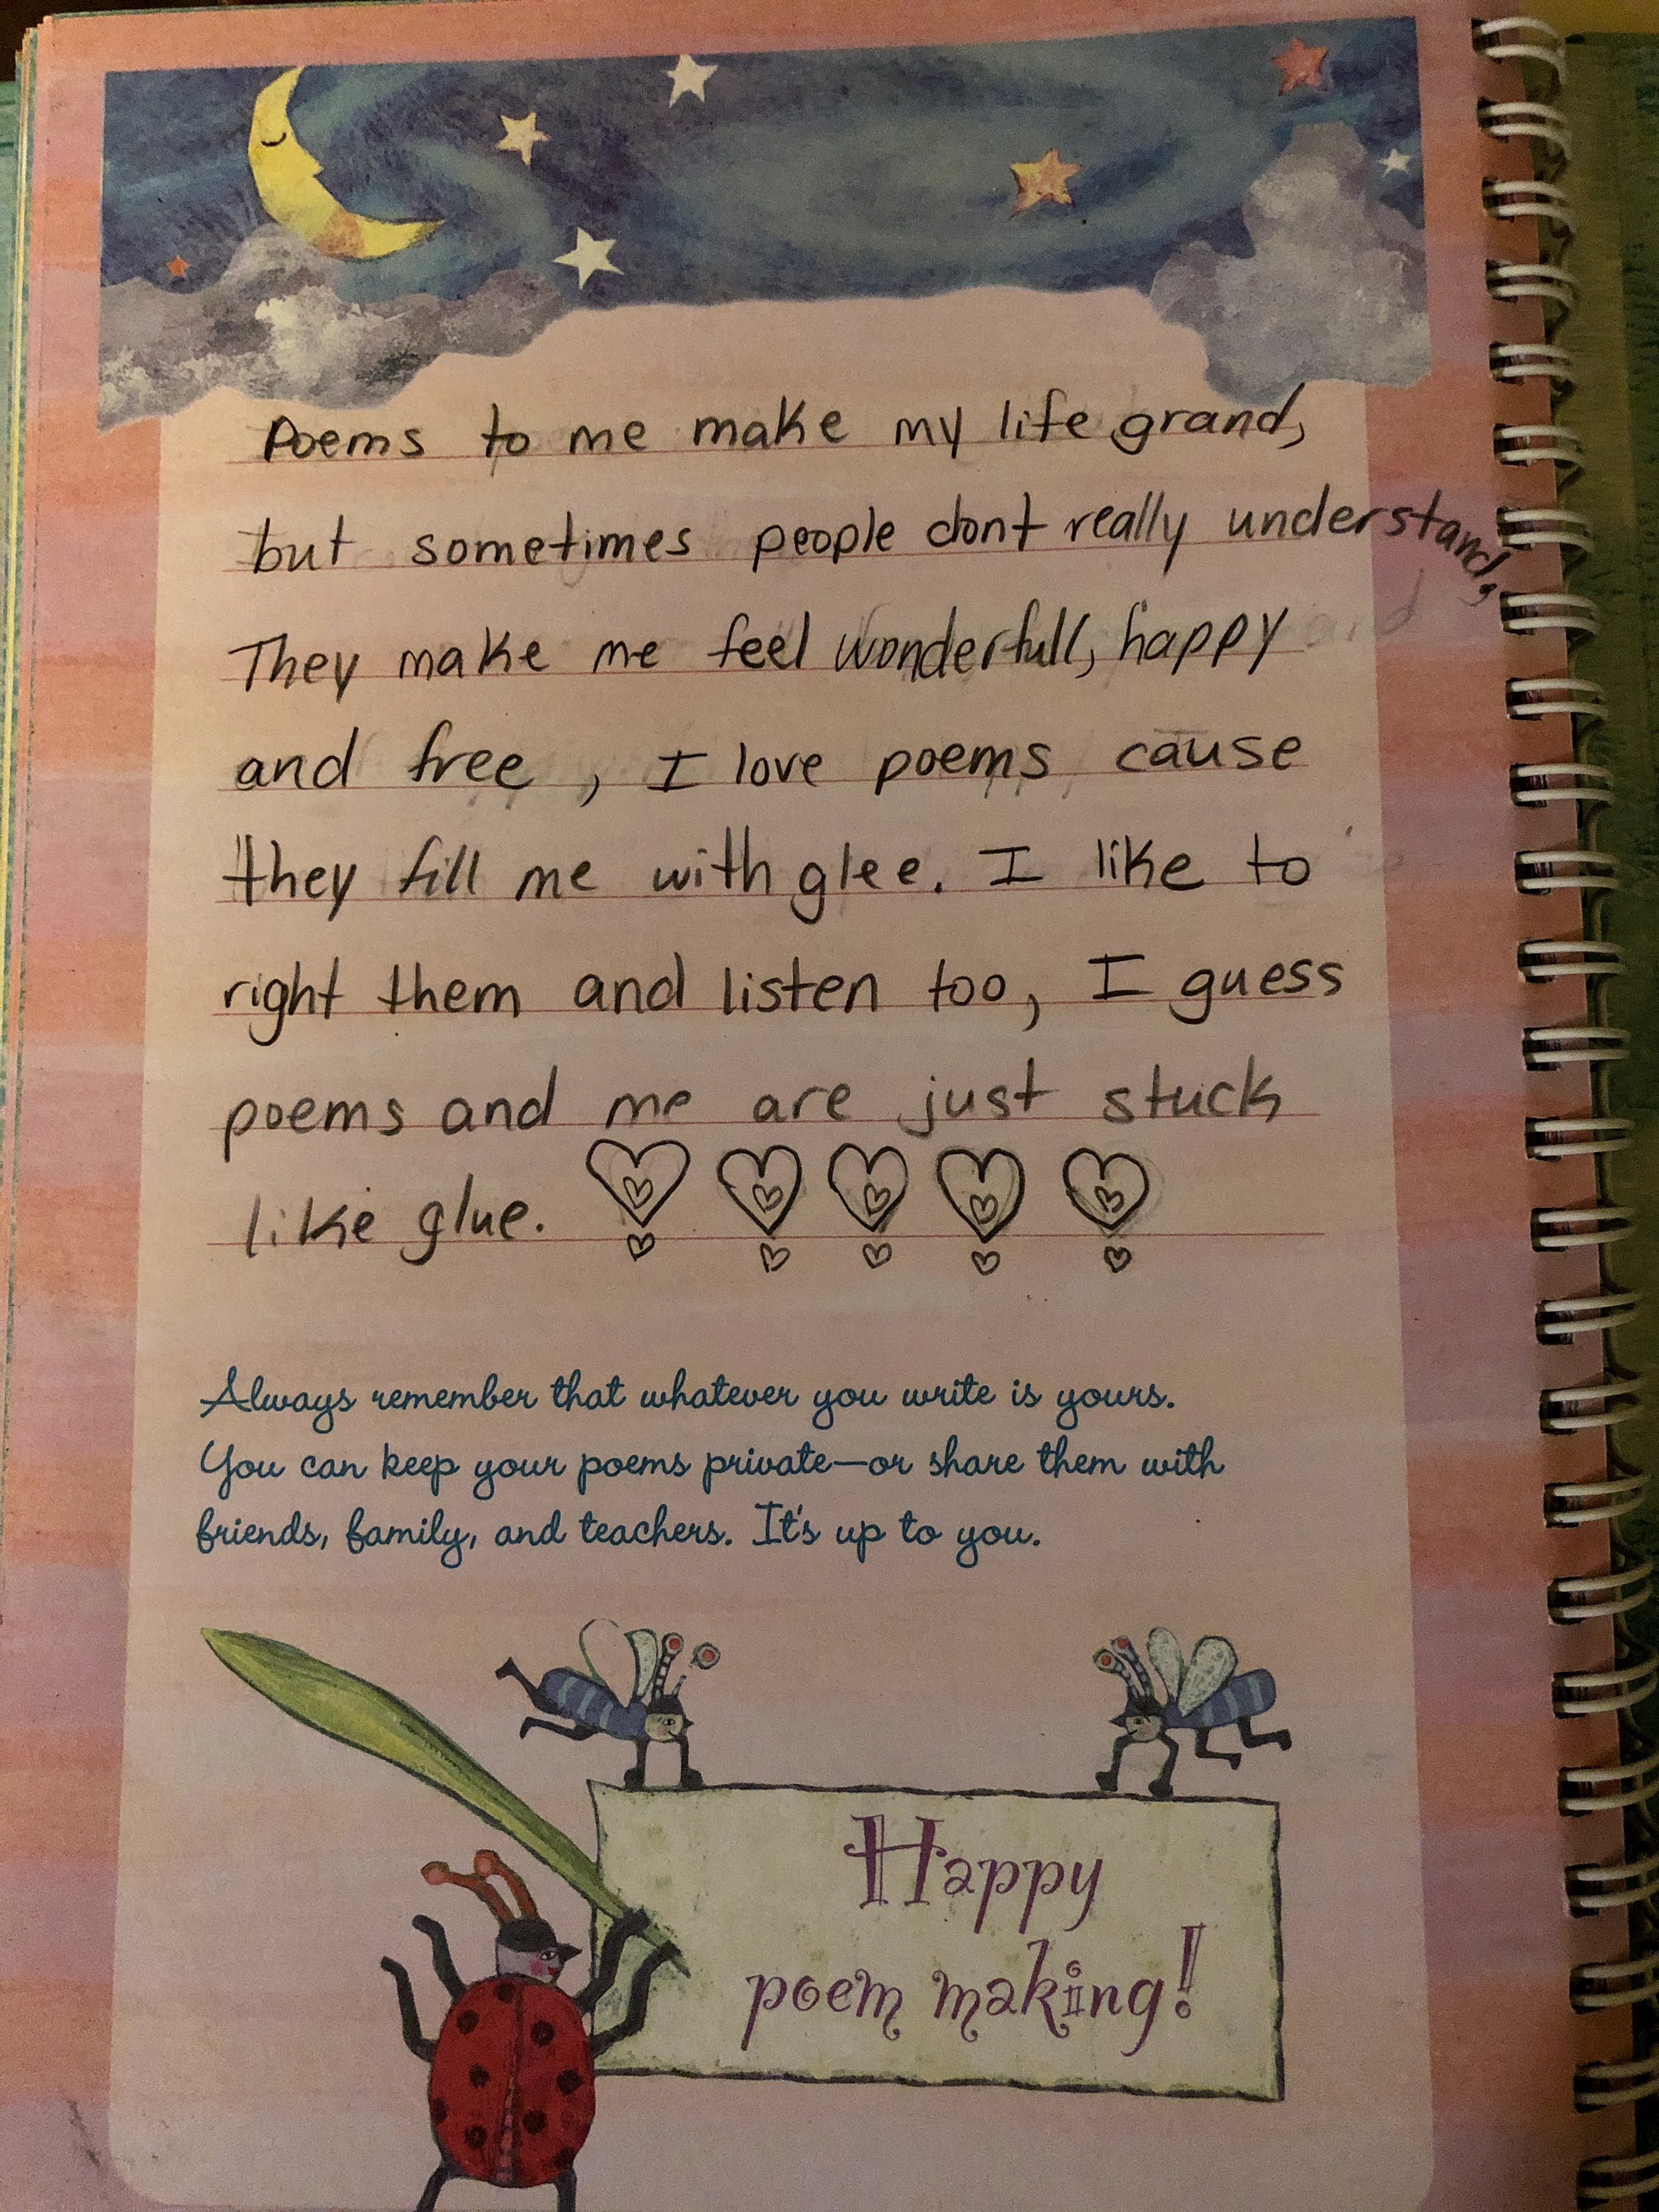 Poems to me make my life grand,
but sometimes people dont really understand,
They make me feel wonderfull, happy
and free, I love poems cause
they fill me with glee. I like to
right them and listen too, I guess
poems and me are just stuck
like glue.
Always remember that whatever you write is yours.
You can keep your poems private—or share them with
friends, family, and teachers. It's up to you.
Happy
poem making!